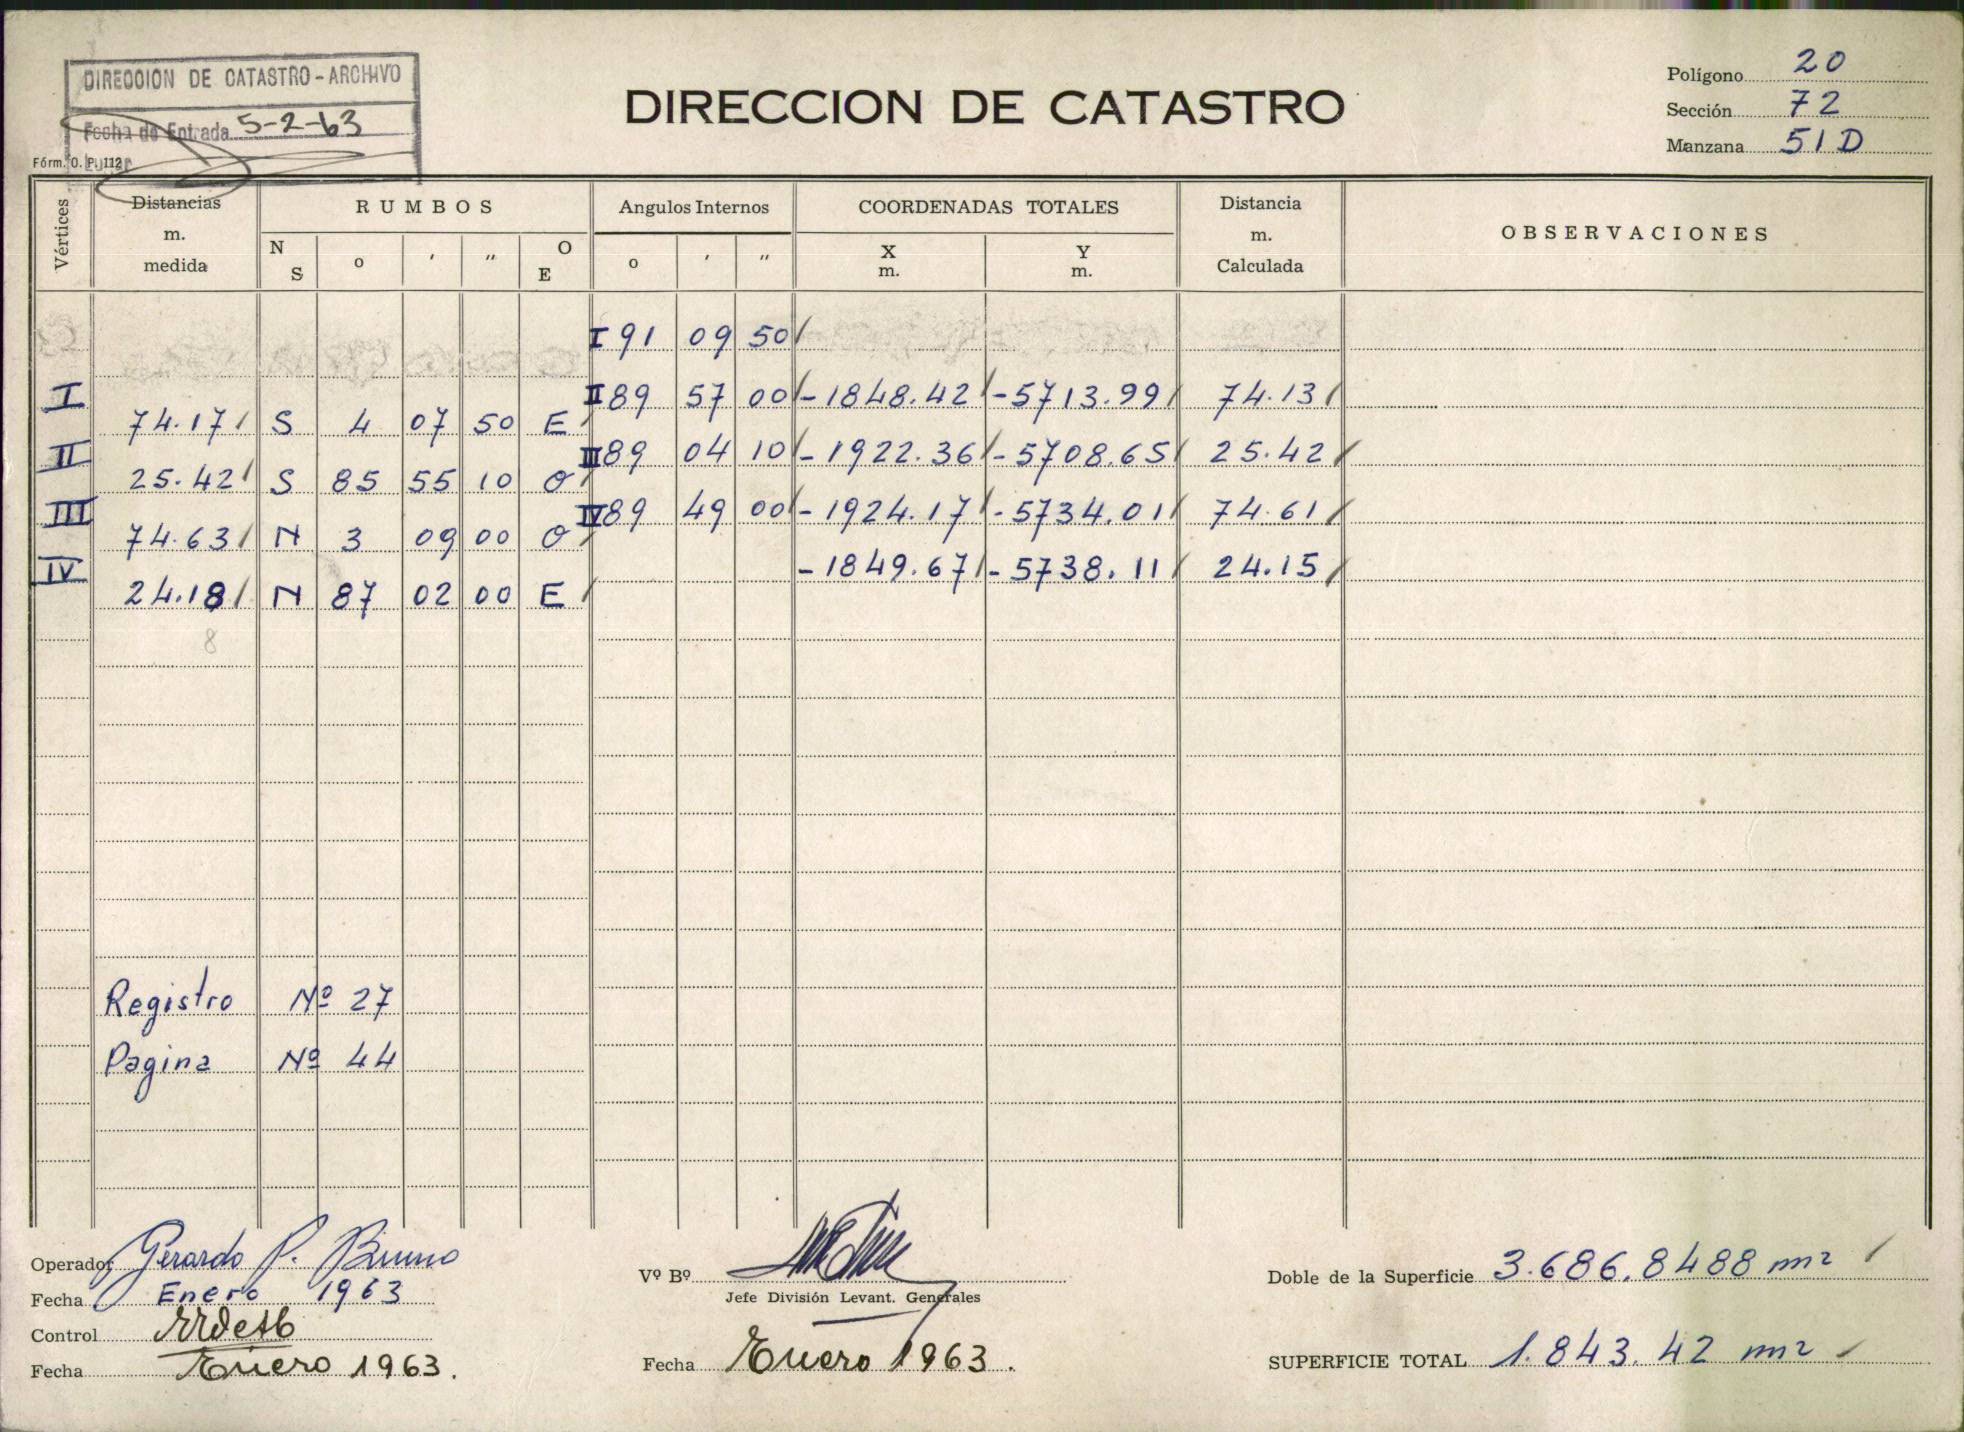 DIRECCION DE CATASTRO - ARCHIVO
Fecha de Entrada 5-2-63
Fórm. O. P. 112
DIRECCION DE CATASTRO
Polígono 20
Sección 72
Manzana 51 D
Vértices
Distancias m. medida
RUMBOS
N S o ' " O E
Angulos Internos
o ' "
COORDENADAS TOTALES
X m. Y m.
Distancia m. Calculada
OBSERVACIONES
I 91 09 50
I II 89 57 00 -1848.42 -5713.99 74.13
74.17 S 4 07 50 E
II III 89 04 10 -1922.36 -5708.65 25.42
25.42 S 85 55 10 O
III IV 89 49 00 -1924.17 -5734.01 74.61
74.63 N 3 09 00 O
IV -1849.67 -5738.11 24.15
24.18 N 87 02 00 E
8
Registro Nº 27
Pagina Nº 44
Operador Gerardo P. Bruno
Fecha Enero 1963
Control
Fecha Enero 1963.
Vº Bº
Jefe División Levant. Generales
Fecha Enero 1963.
Doble de la Superficie 3.686,8488 m2
SUPERFICIE TOTAL 1.843.42 m2